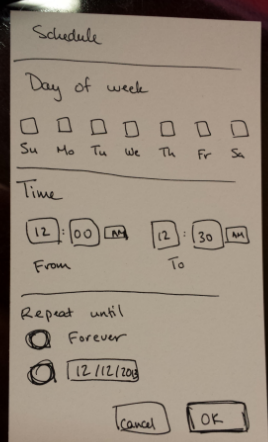 Schedule
Day of week
Su Mo Tu We Th Fr Sa
Time
12 : 00 AM 12 : 30 AM
From To
Repeat until
Forever
12/12/2013
cancel OK